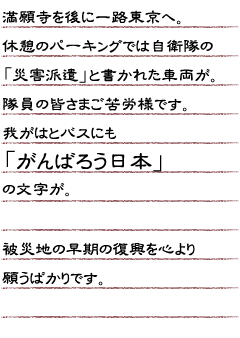 満願寺を後に一路東京へ。
休憩のパーキングでは自衛隊の
「災害派遣」と書かれた車両が。
隊員の皆さまご苦労様です。
我がはとバスにも
「がんばろう日本」
の文字が。
被災地の早期の復興を心より
願うばかりです。